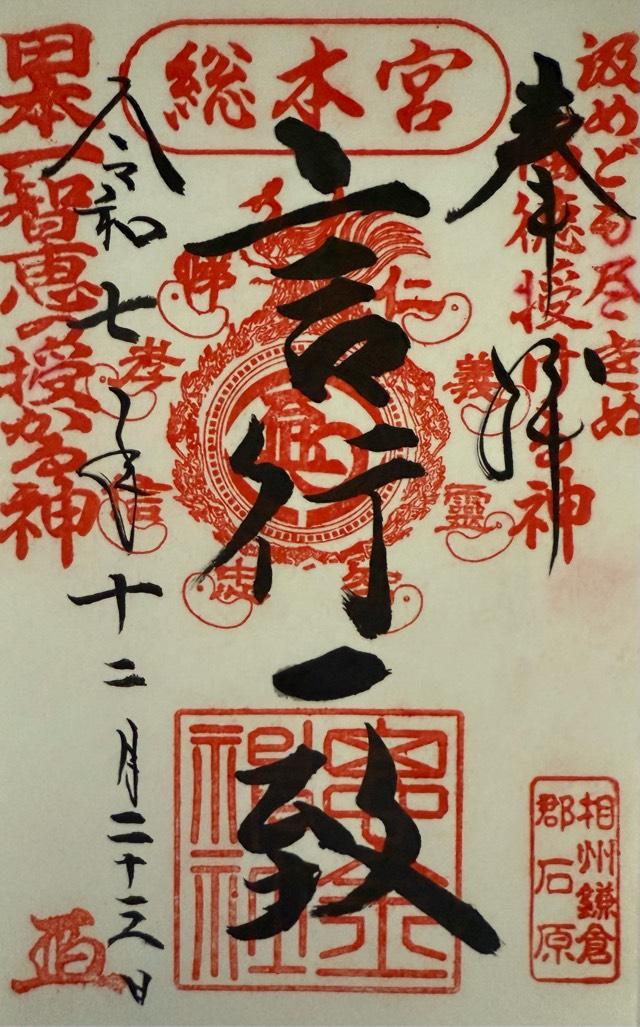 総本宮
汲めども尽きぬ
福徳授ける神
奉拝
言行一致
仁
義
靈
忠
信
孝
悌
令和七年十二月二十三日
日本一智恵授かる神
相州鎌倉
郡石原